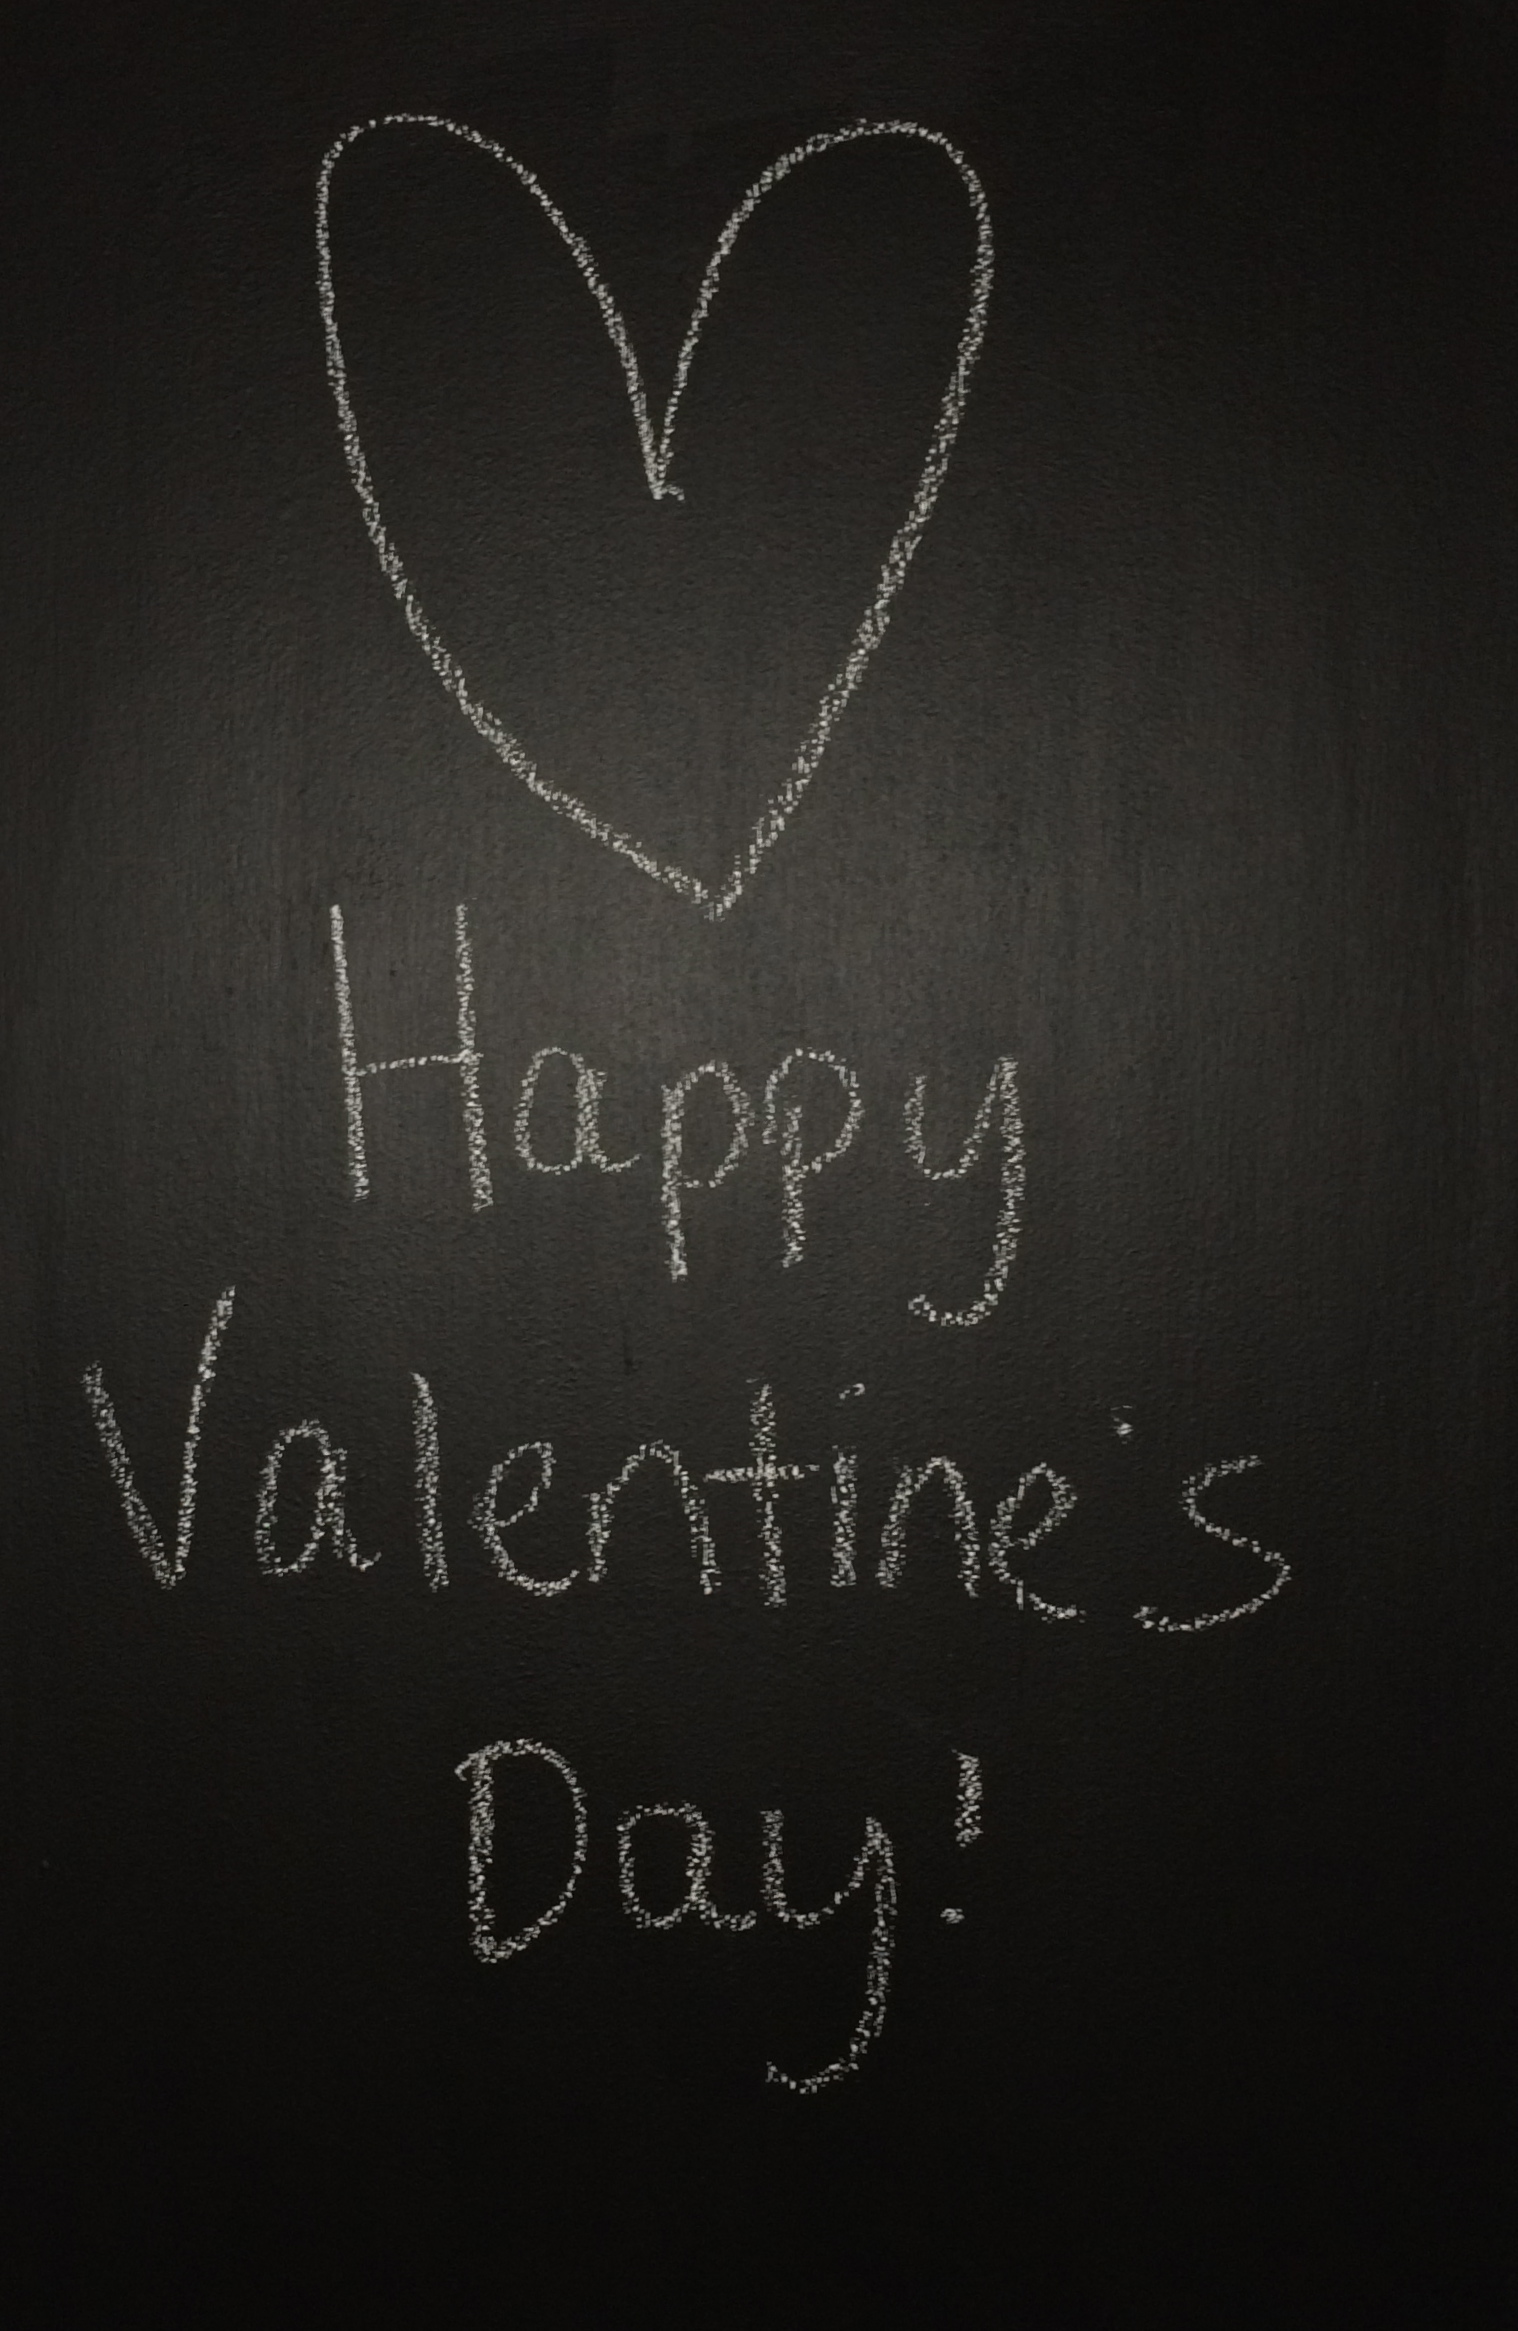 Happy
Valentine's
Day!